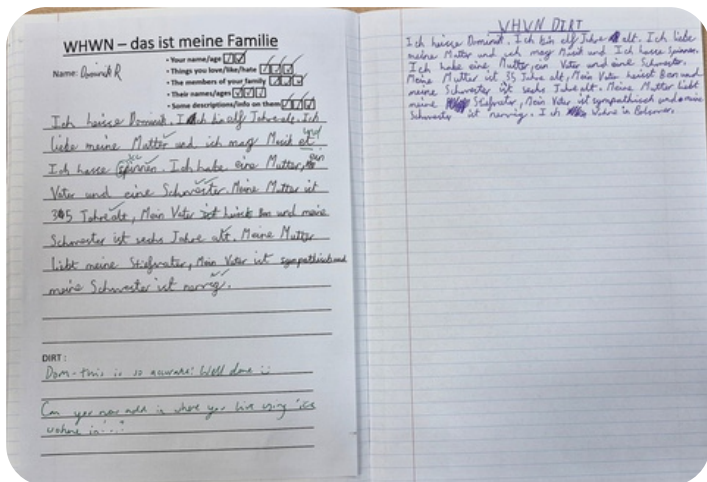 WHWN – das ist meine Familie
Name: Dominik R
• Your name/age
• Things you love/like/hate
• The members of your family
• Their names/ages
• Some descriptions/info on them
Ich heisse Dominik. Ich bin elf Jahre alt. Ich
liebe meine Mutter und ich mag Musik
Ich hasse spinnen. Ich habe eine Mutter, ein
Vater und eine Schwester. Meine Mutter ist
35 Jahre alt, Mein Vater heisst Ben und meine
Schwester ist sechs Jahre alt. Meine Mutter
liebt meine Stiefvater, Mein Vater ist sympathisch und
meine Schwester ist nervig.
DIRT:
Dom - this is so accurate! Well done
Can you now add in where you live using 'ich
wohne in...'
WHWN DIRT
Ich heisse Dominik. Ich bin elf Jahre alt. Ich liebe
meine Mutter und ich mag Musik und Ich hasse Spinnen.
Ich habe eine Mutter, ein Vater und eine Schwester.
Meine Mutter ist 35 Jahre alt, Mein Vater heisst Ben und
meine Schwester ist sechs Jahre alt. Meine Mutter liebt
meine Stiefvater, Mein Vater ist sympathisch und meine
Schwester ist nervig. Ich wohne in